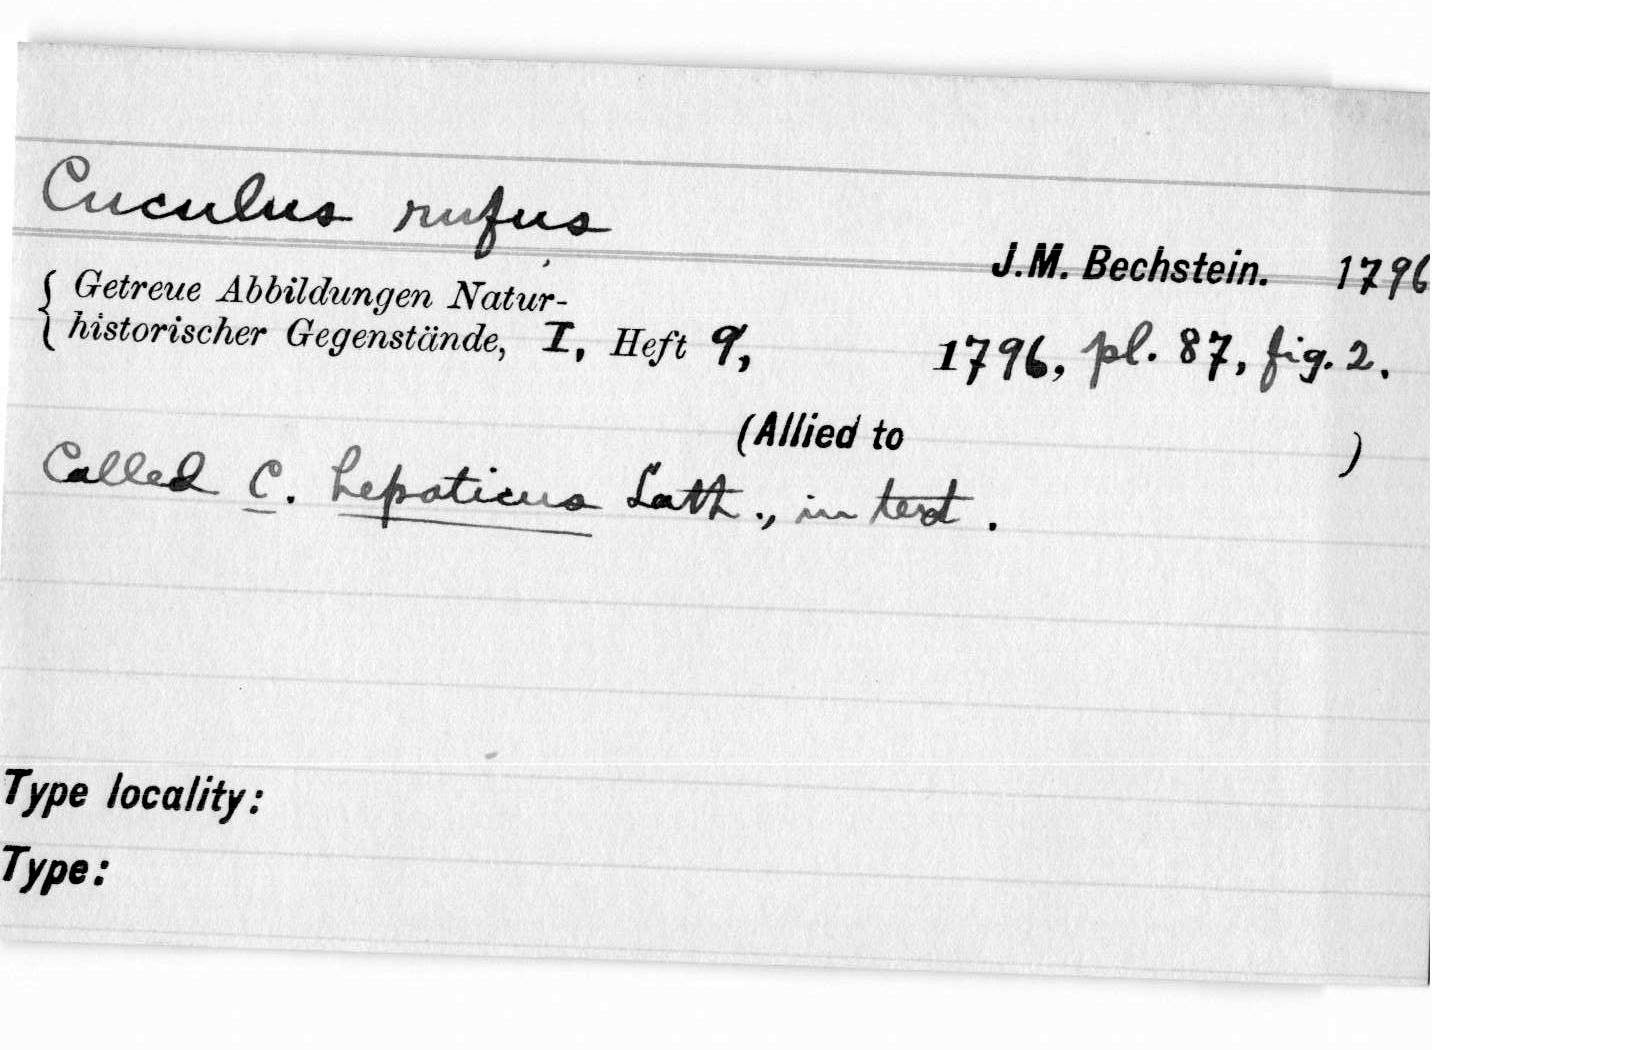 Cuculus rufus
J.M. Bechstein. 1796
Getreue Abbildungen Natur-
historischer Gegenstände, I, Heft 9, 1796, pl. 87, fig. 2.
(Allied to )
Called C. hepaticus Lath., in text.
Type locality:
Type: